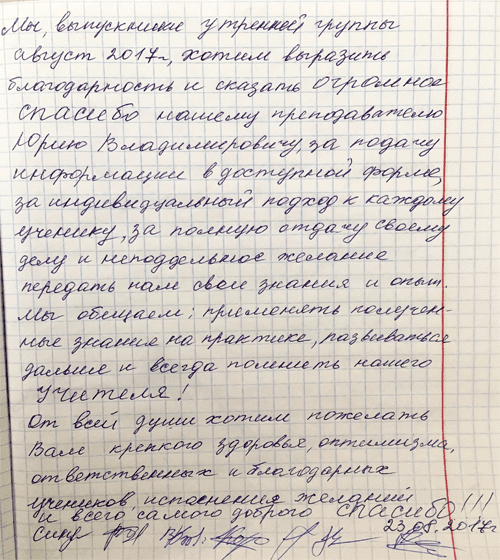 Мы, выпускники утренней группы
август 2017г., хотим выразить
благодарность и сказать огромное
спасибо нашему преподавателю
Юрию Владимировичу, за подачу
информации в доступной форме,
за индивидуальный подход к каждому
ученику, за полную отдачу своему
делу и неподдельное желание
передать нам свои знания и опыт.
Мы обещаем: применять получен-
ные знания на практике, развиваться
дальше и всегда помнить нашего
учителя!
От всей души хотим пожелать
Вам крепкого здоровья, оптимизма,
ответственных и благодарных
учеников, исполнения желаний
и всего самого доброго спасибо!!!
23.08.2017г.